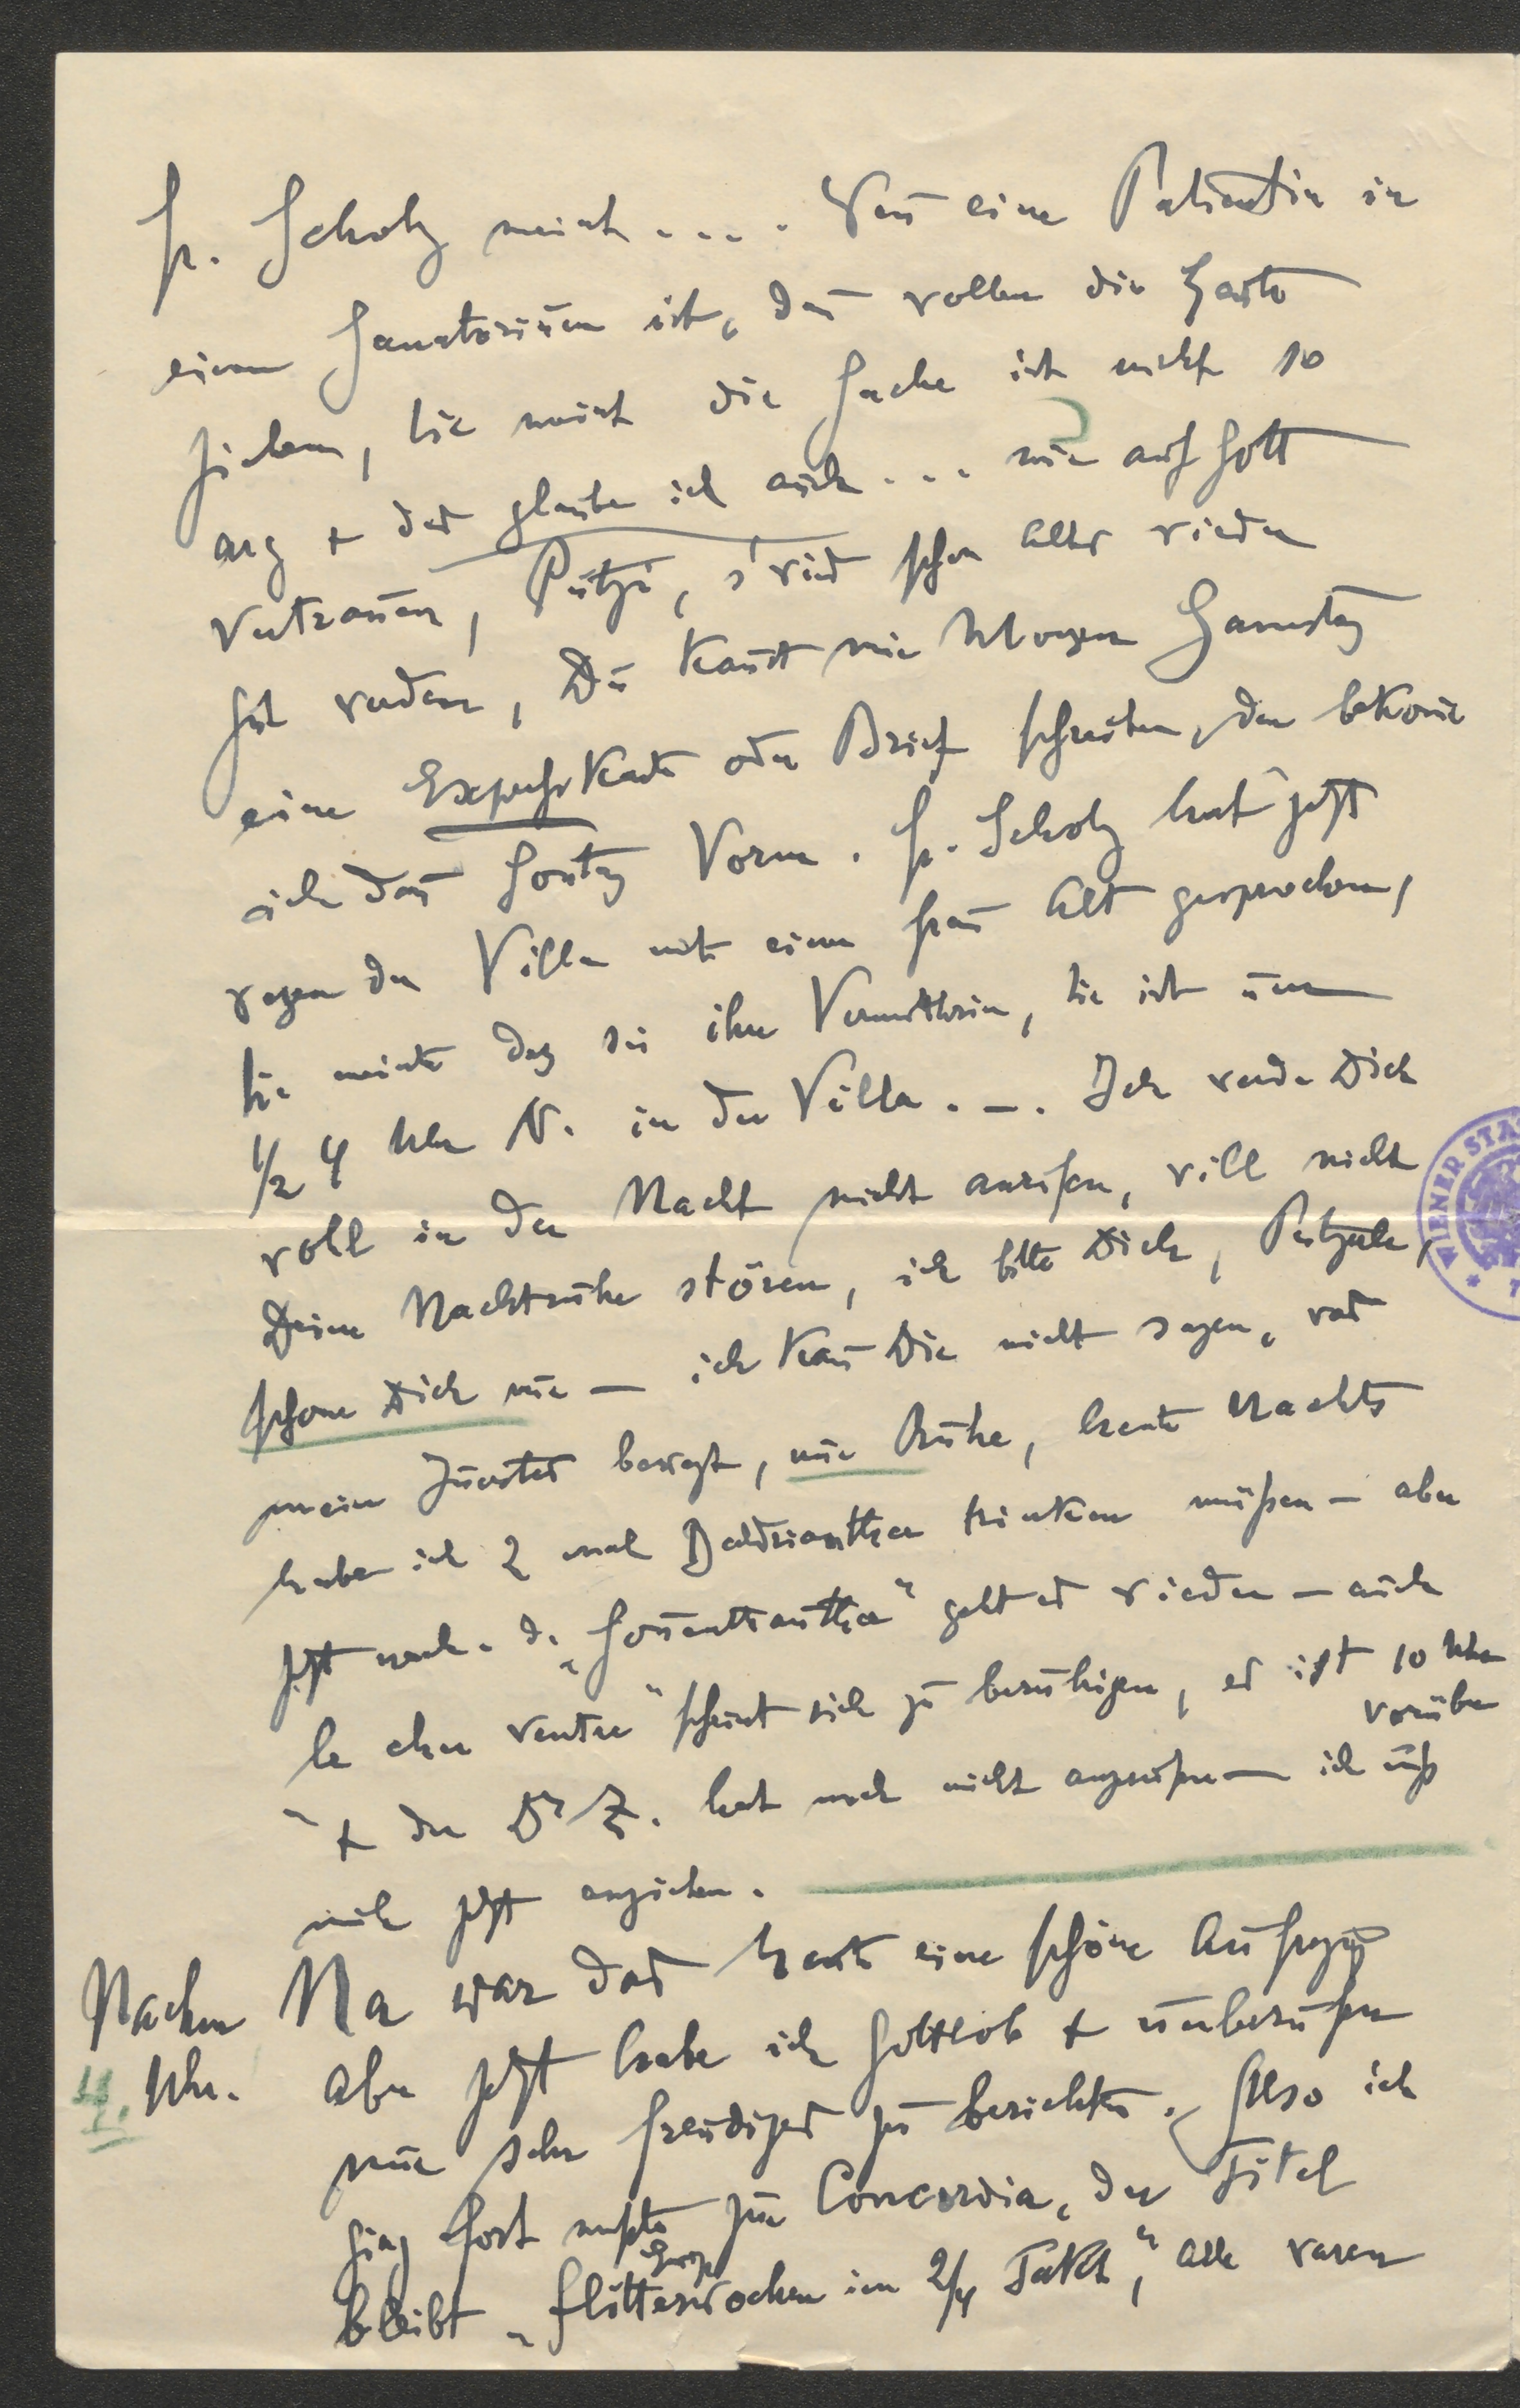 Fr. Scholz meint .... Wen̄ eine Patientin in
einem Sanatorium ist, dan̄ wollen die Gäste
ziehen, sie meint die Sache ist nicht so
arg + das glaube ich auch ... nur auf Gott
vertrauen, Putzi, s'wird schon alles wieder
gut werden, Du kan̄st mir Morgen Samstag
eine Expreßkarte oder Brief schreiben, den bekom̄e
ich dan̄ Son̄tag Vorm. Fr. Scholz hat jetzt
wegen der Villa mit einer Frau Alt gesprochen,
sie meinte daß sei ihre Vermittlerin, sie ist um
1/2 4 Uhr N. in der Villa. –. Ich werde Dich
wohl in der Nacht nicht anrufen, will nicht
Deine Nachtruhe stören, ich bitte Dich,
schone Dich nur – ich kan̄ Dir nicht sagen, was
mein Innerstes bewegt, nur Ruhe, heute Nachts
habe ich 2 mal Baldrianthee trinken müßen – aber
jetzt nach d. geht es wieder – auch
le cher ventre" scheint sich zu beruhigen, es ist 10 Uhr
vorüber
+ der Dr Z. hat noch nicht angerufen – ich muß
mich jetzt anziehen.
Nachm Na war das heute eine schöne Aufregg
4 Uhr. Aber jetzt habe ich Gottlob + unberufen
nur sehr freudiges zu berichten. Also ich
ging fort mußte zur Concordia, der Titel
bleibt „Flitterwochen im 2/4 Takt", alle waren
WIENER STA